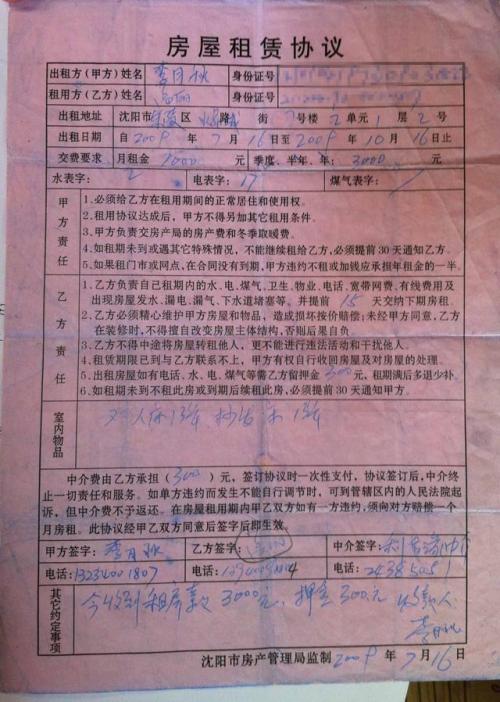 房屋租赁协议
出租方(甲方)姓名 李月秋 身份证号
租用方(乙方)姓名 身份证号
出租地址 沈阳市 区 路 街 号楼 2 单元 1 层 2 号
出租日期 自 2009 年 7 月 16 日至 2009 年 10 月 16 日止
交费要求 月租金 1000 元 季度、半年、年: 3000 元
水表字: 2 电表字: 17 煤气表字:
甲方责任
1.必须给乙方在租用期间的正常居住和使用权。
2.租用协议达成后,甲方不得另加其它租用条件。
3.甲方负责交房产局的房产费和冬季取暖费。
4.如租期未到或遇其它特殊情况,不能继续租给乙方,必须提前30天通知乙方。
5.如果租门市或网点,在合同没有到期,甲方违约不租或加钱应承担年租金的一半。
乙方责任
1.乙方负责自己租期内的水、电、煤气、卫生、物业、电话、宽带网费、有线费用及
出现房屋发水、漏电、漏气、下水道堵塞等。并提前 15 天交纳下期房租。
2.乙方必须精心维护甲方房屋和物品,造成损坏按价赔偿;未经甲方同意,乙方
在装修时,不得擅自改变房屋主体结构,否则后果自负。
3.乙方不得中途将房屋转租他人,更不能进行违法活动和干扰他人。
4.租赁期限已到与乙方联系不上,甲方有权自行收回房屋及对房屋的处理。
5.出租房屋如有电话、水、电、煤气等需乙方留押金 300 元,租期满后多退少补。
6.如租期未到不租此房或到期后续租此房,必须提前30天通知甲方。
室内物品
中介费由乙方承担(300)元,签订协议时一次性支付,协议签订后,中介终
止一切责任和服务。如单方违约而发生不能自行调节时,可到管辖区内的人民法院起
诉,但中介费不予返还。在房屋租用期内甲乙双方如有一方违约,须向对方赔偿一个
月房租。此协议经甲乙双方同意后签字后即生效。
甲方签字: 李月秋 乙方签字: 中介签字:
电话: 13234001807 电话: 电话:
其它约定事项
今收到租房款3000元、押金300元 收款人:
李月秋
沈阳市房产管理局监制 2009 年 7 月 16 日